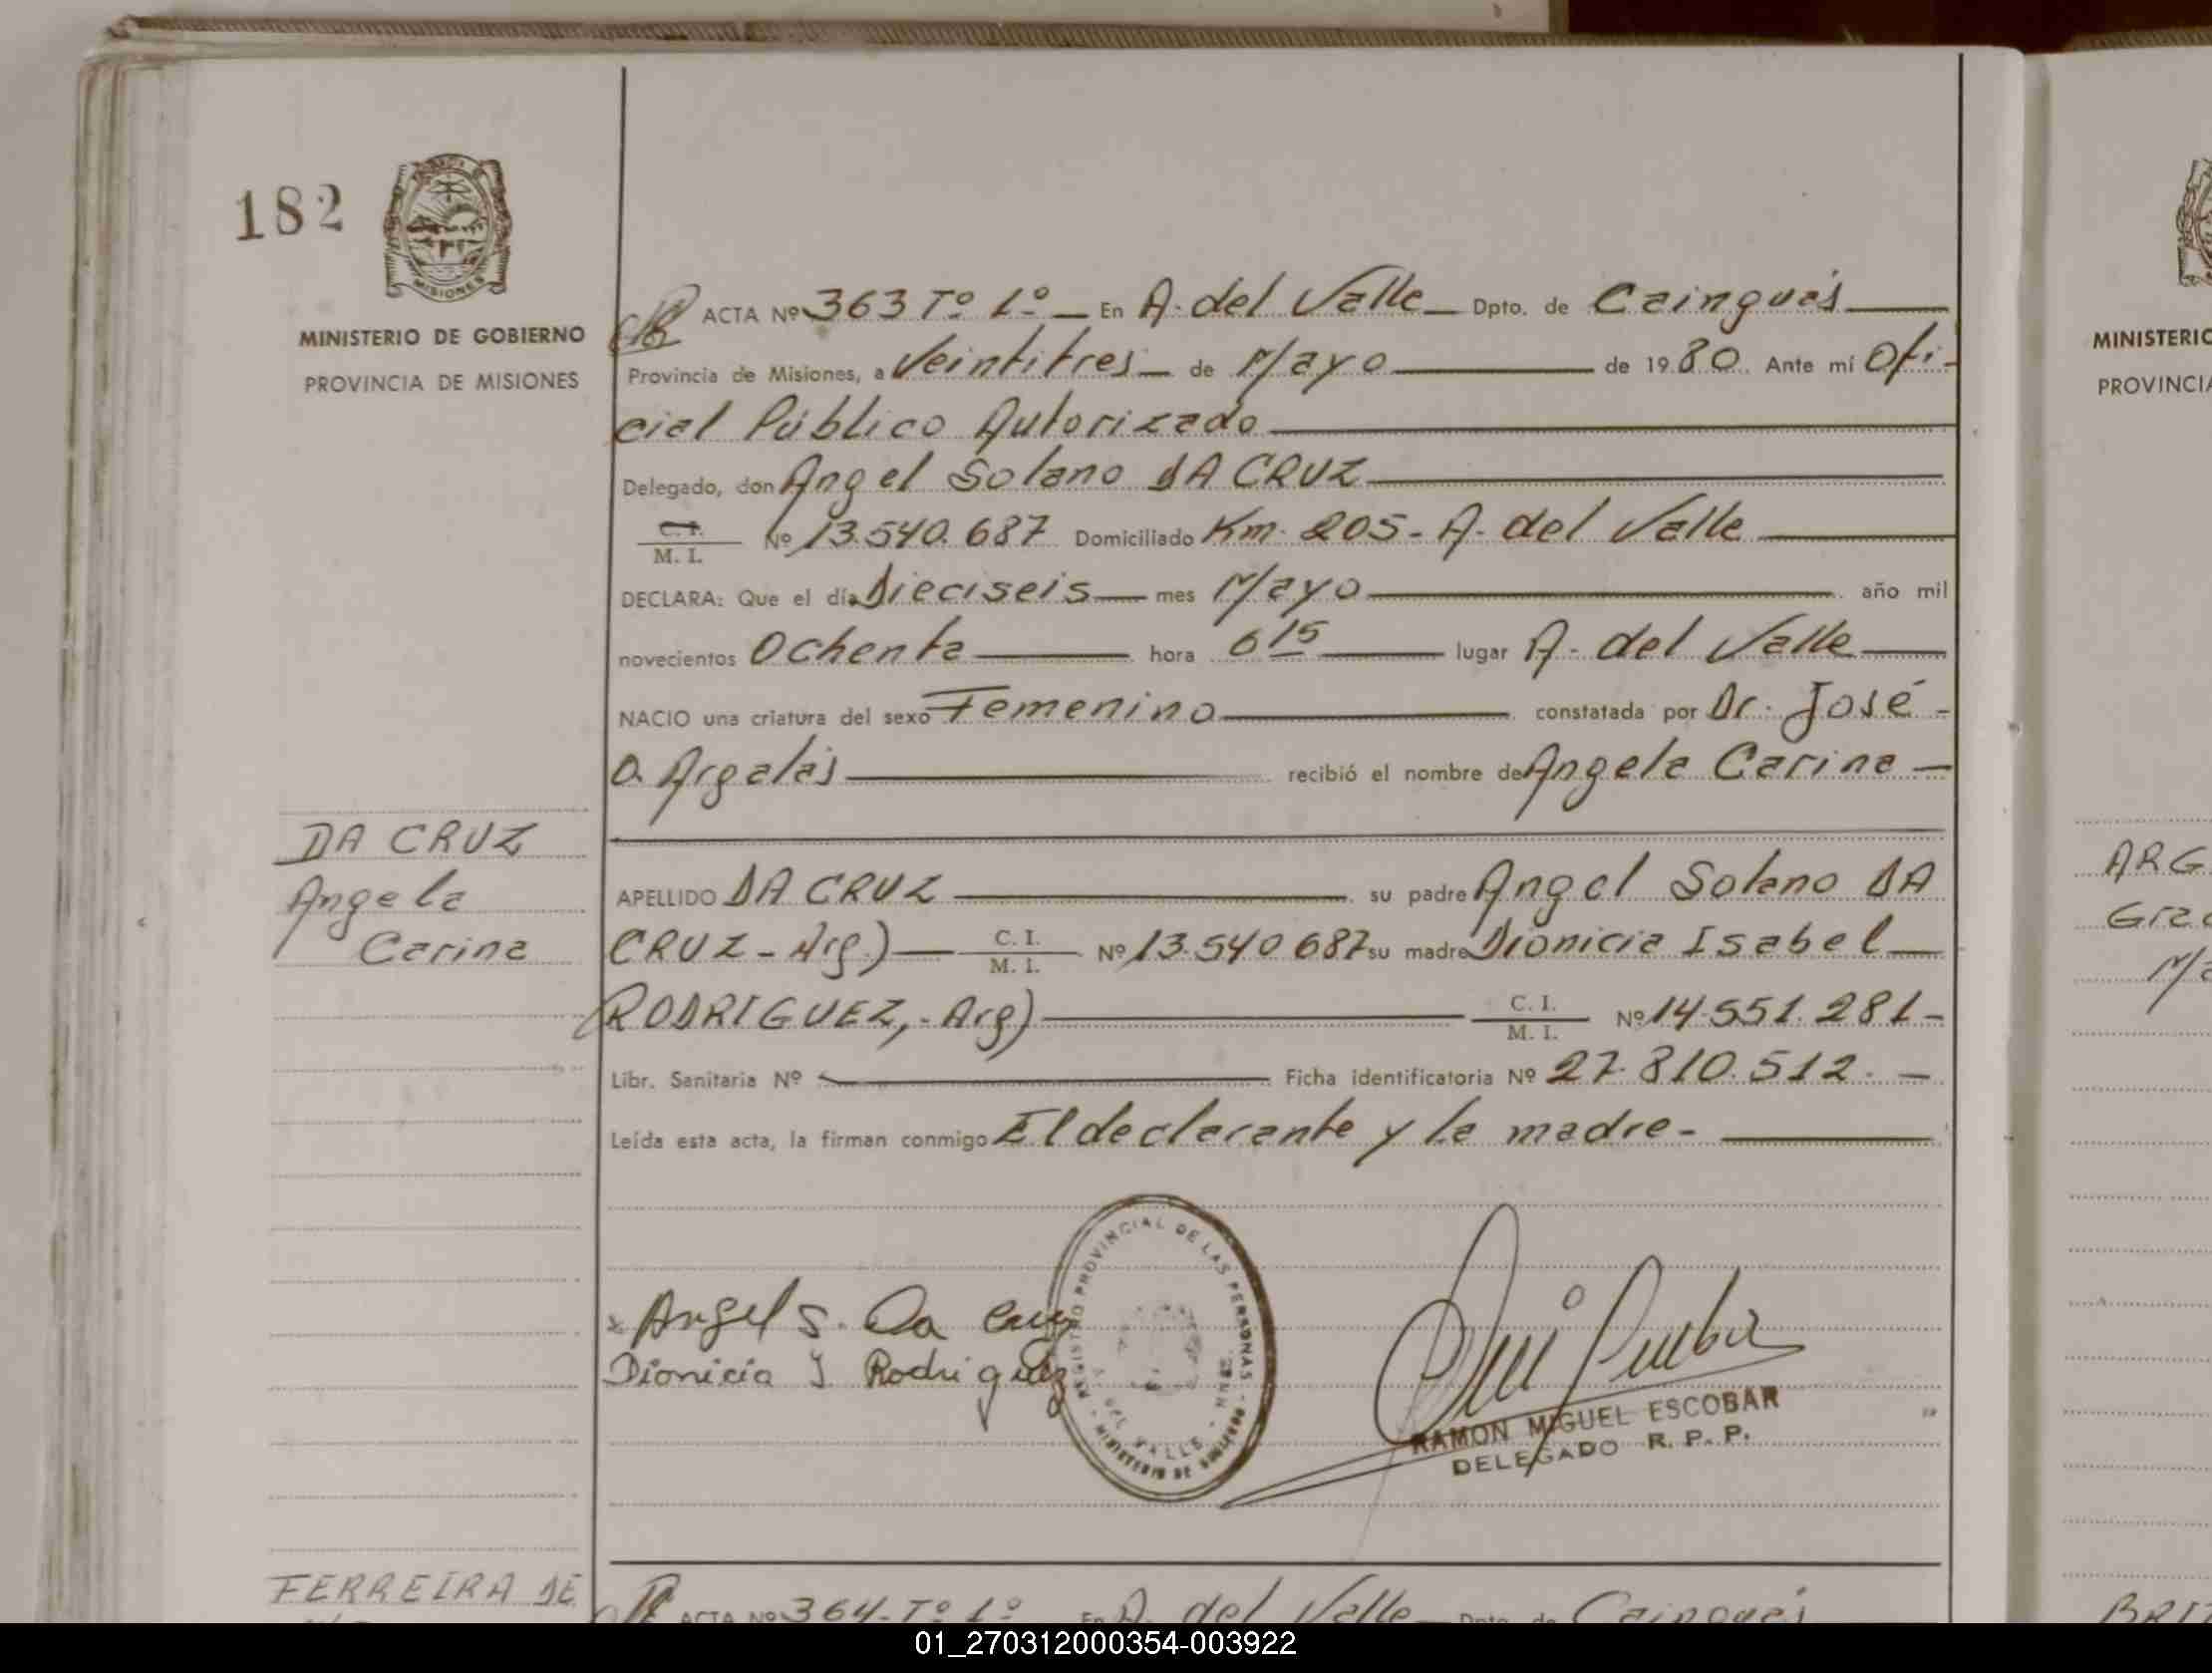 182
MISIONES
MINISTERIO DE GOBIERNO
PROVINCIA DE MISIONES
ACTA Nº 363 Tº 1º — En A. del Valle — Dpto. de Cainguás —
Provincia de Misiones, a Veintitres — de Mayo — de 1980. Ante mí Ofi-
cial Público Autorizado —
Delegado, don Angel Solano DA CRUZ —
C.I. / M. I. Nº 13.540.687 Domiciliado Km. 205 - A. del Valle —
DECLARA: Que el día Dieciseis — mes Mayo — año mil
novecientos Ochenta — hora 6 15 — lugar A. del Valle —
NACIO una criatura del sexo Femenino — constatada por Dr. José -
O. Argalás — recibió el nombre de Angela Carina —
DA CRUZ
Angela
Carina
APELLIDO DA CRUZ — su padre Angel Solano DA
CRUZ - Arg.) — C. I. / M. I. Nº 13.540 687 su madre Dionicia Isabel —
RODRIGUEZ, - Arg) — C. I. / M. I. Nº 14.551.281 -
Libr. Sanitaria Nº — Ficha identificatoria Nº 27.810.512. —
Leída esta acta, la firman conmigo El declarante y la madre - —
x Angel S. Da Cruz
Dionicia I Rodriguez
REGISTRO PROVINCIAL DE LAS PERSONAS - MINISTERIO DE GOBIERNO
DEL VALLE
RAMON MIGUEL ESCOBAR
DELEGADO R. P. P.
FERREIRA DE
ACTA Nº 364 - Tº 1º En A. del Valle — Dpto. de Cainguás
MINISTERIO
PROVINCIA
ARG
Gra
Ma
01_270312000354-003922